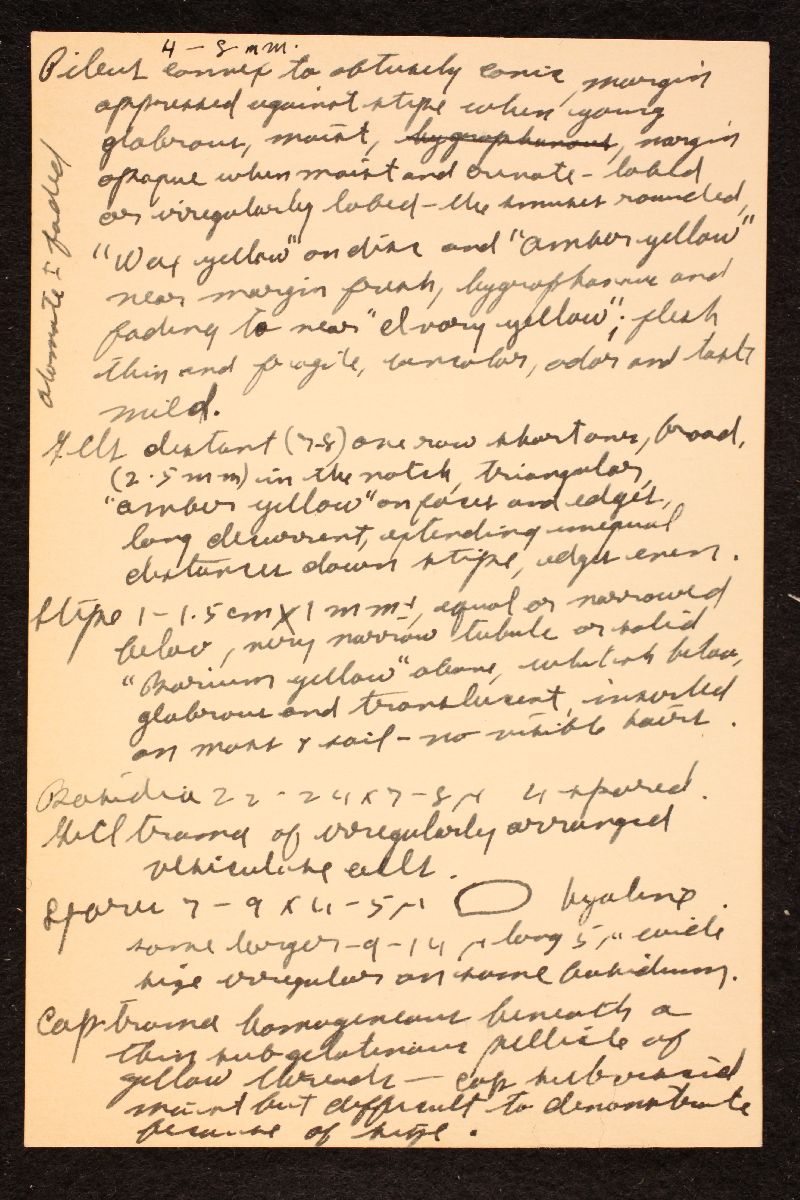 4 - 8 mm.
Pileus convex to obtusely conic, margin
appressed against stipe when young
glabrous, moist, hygrophanous, margin
opaque when moist and crenate-lobed
or irregularly lobed - the sinuses rounded,
"Wax yellow" on disc and "amber yellow"
near margin fresh, hygrophanous and
fading to near "Ivory yellow"; flesh
thin and fragile, concolor, odor and taste
mild.
atomate if faded
Gills distant (7-8) one row short ones, broad,
(2.5 mm) in the notch, triangular,
"amber yellow" on faces and edges,
long decurrent, extending unequal
distances down stipe, edges even.
Stipe 1-1.5 cm X 1 mm±, equal or narrowed
below, very narrow tubule or solid
"Barium yellow" above, whitish below,
glabrous and translucent, inserted
on moss & soil - no visible hairs.
Basidia 22-24 x 7-8 µ 4-spored.
Gill trama of irregularly arranged
vesiculose cells.
Spores 7-9 X 4-5 µ hyaline.
some larger - 9-14 µ long 5 µ wide
size irregular on same basidium.
Cap trama homogeneous beneath a
thin subgelatinous pellicle of
yellow threads — cap subviscid
moist but difficult to demonstrate
because of size.